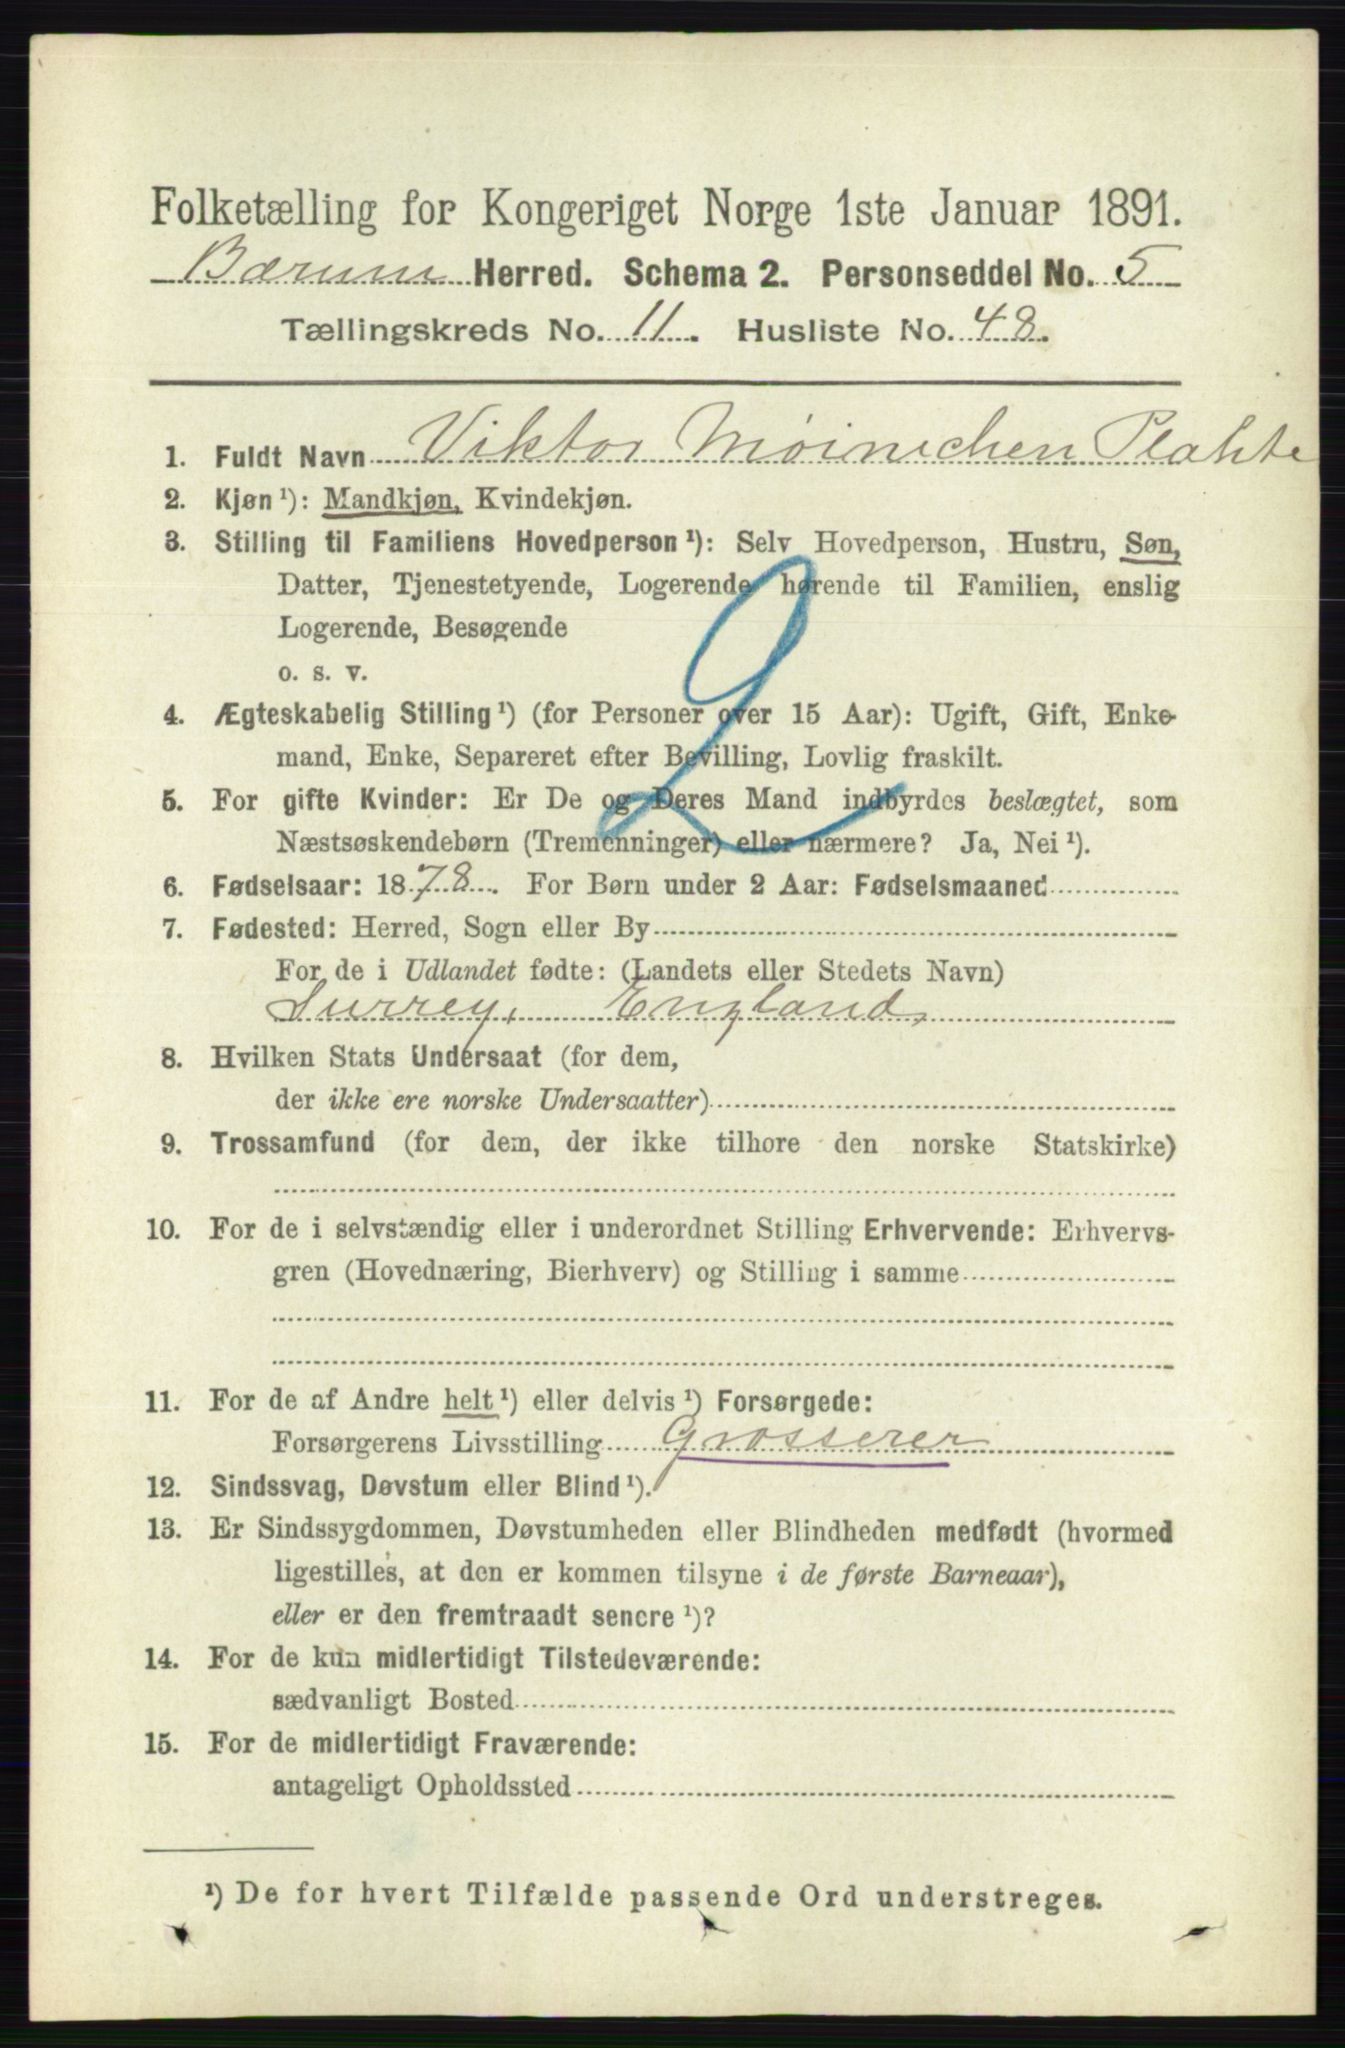 Folketælling for Kongeriget Norge 1ste Januar 1891.
Bærum Herred. Schema 2. Personseddel No. 5
Tællingskreds No. 11. Husliste No. 48.
1. Fuldt Navn Viktor Møinichen Plahte
2. Kjøn ¹): Mandkjøn, Kvindekjøn.
3. Stilling til Familiens Hovedperson ¹): Selv Hovedperson, Hustru, Søn,
Datter, Tjenestetyende, Logerende hørende til Familien, enslig
Logerende, Besøgende
o. s. v.
2
4. Ægteskabelig Stilling ¹) (for Personer over 15 Aar): Ugift, Gift, Enke-
mand, Enke, Separeret efter Bevilling, Lovlig fraskilt.
5. For gifte Kvinder: Er De og Deres Mand indbyrdes beslægtet, som
Næstsøskendebørn (Tremenninger) eller nærmere? Ja, Nei ¹).
6. Fødselsaar: 1878. For Børn under 2 Aar: Fødselsmaaned
7. Fødested: Herred, Sogn eller By
For de i Udlandet fødte: (Landets eller Stedets Navn)
Surrey, England,
8. Hvilken Stats Undersaat (for dem,
der ikke ere norske Undersaatter)
9. Trossamfund (for dem, der ikke tilhøre den norske Statskirke)
10. For de i selvstændig eller i underordnet Stilling Erhvervende: Erhvervs-
gren (Hovednæring, Bierhverv) og Stilling i samme
11. For de af Andre helt ¹) eller delvis ¹) Forsørgede:
Forsørgerens Livsstilling Grosserer
12. Sindssvag, Døvstum eller Blind ¹).
13. Er Sindssygdommen, Døvstumheden eller Blindheden medfødt (hvormed
ligestilles, at den er kommen tilsyne i de første Barneaar),
eller er den fremtraadt senere ¹)?
14. For de kun midlertidigt Tilstedeværende:
sædvanligt Bosted
15. For de midlertidigt Fraværende:
antageligt Opholdssted
¹) De for hvert Tilfælde passende Ord understreges.